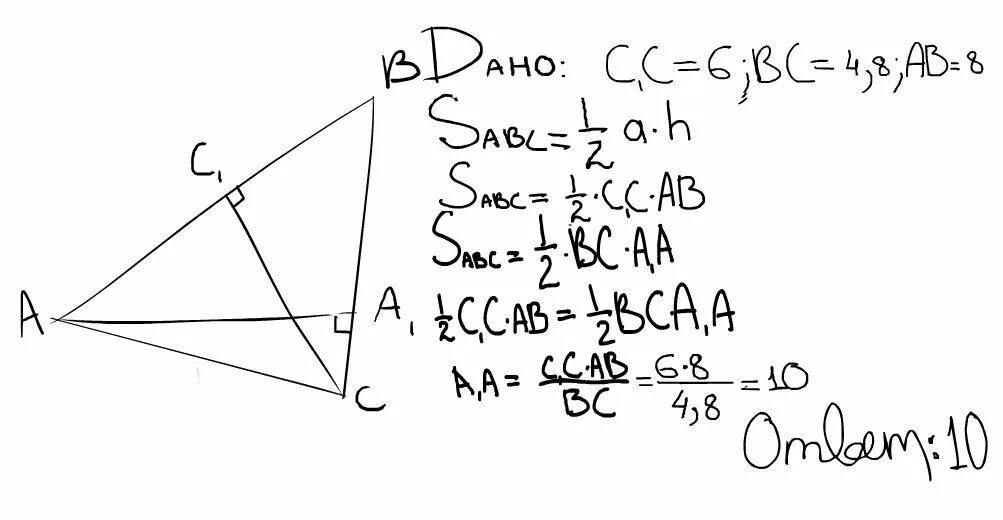 B Дано: C₁C=6; BC=4,8; AB=8
S ABC = 1/2 a·h
C₁
S ABC = 1/2·C₁C·AB
S ABC = 1/2·BC·A₁A
A A₁ 1/2 C₁C·AB = 1/2 BC A₁A
A₁A = C₁C·AB/BC = 6·8/4,8 = 10
C
Ответ: 10